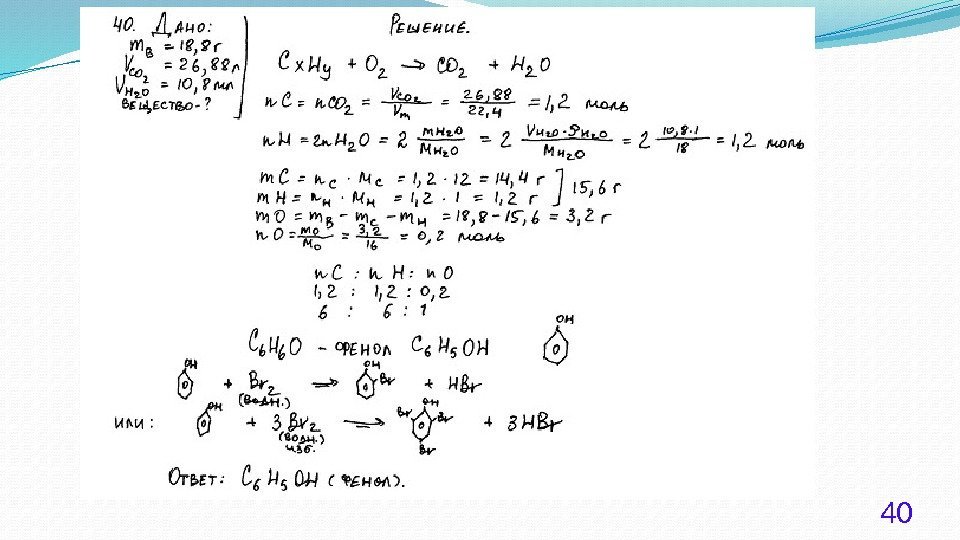 40. Дано:
mв = 18,8 г
Vco2 = 26,88 л
VH2O = 10,8 мл
вещество - ?
Решение.
CxHy + O2 → CO2 + H2O
nC = nCO2 = Vco2/Vm = 26,88/22,4 = 1,2 моль
nH = 2nH2O = 2 mH2O/MH2O = 2 VH2O·ρH2O/MH2O = 2 10,8·1/18 = 1,2 моль
mC = nC · MC = 1,2 · 12 = 14,4 г ] 15,6 г
mH = nH · MH = 1,2 · 1 = 1,2 г
mO = mв - mC - mH = 18,8 - 15,6 = 3,2 г
nO = mO/MO = 3,2/16 = 0,2 моль
nC : nH : nO
1,2 : 1,2 : 0,2
6 : 6 : 1
C6H6O - фенол C6H5OH OH
OH + Br2 (водн.) → OH Br + HBr
или: OH + 3Br2 (водн.) изб. → OH Br Br Br + 3HBr
Ответ: C6H5OH (фенол).
40